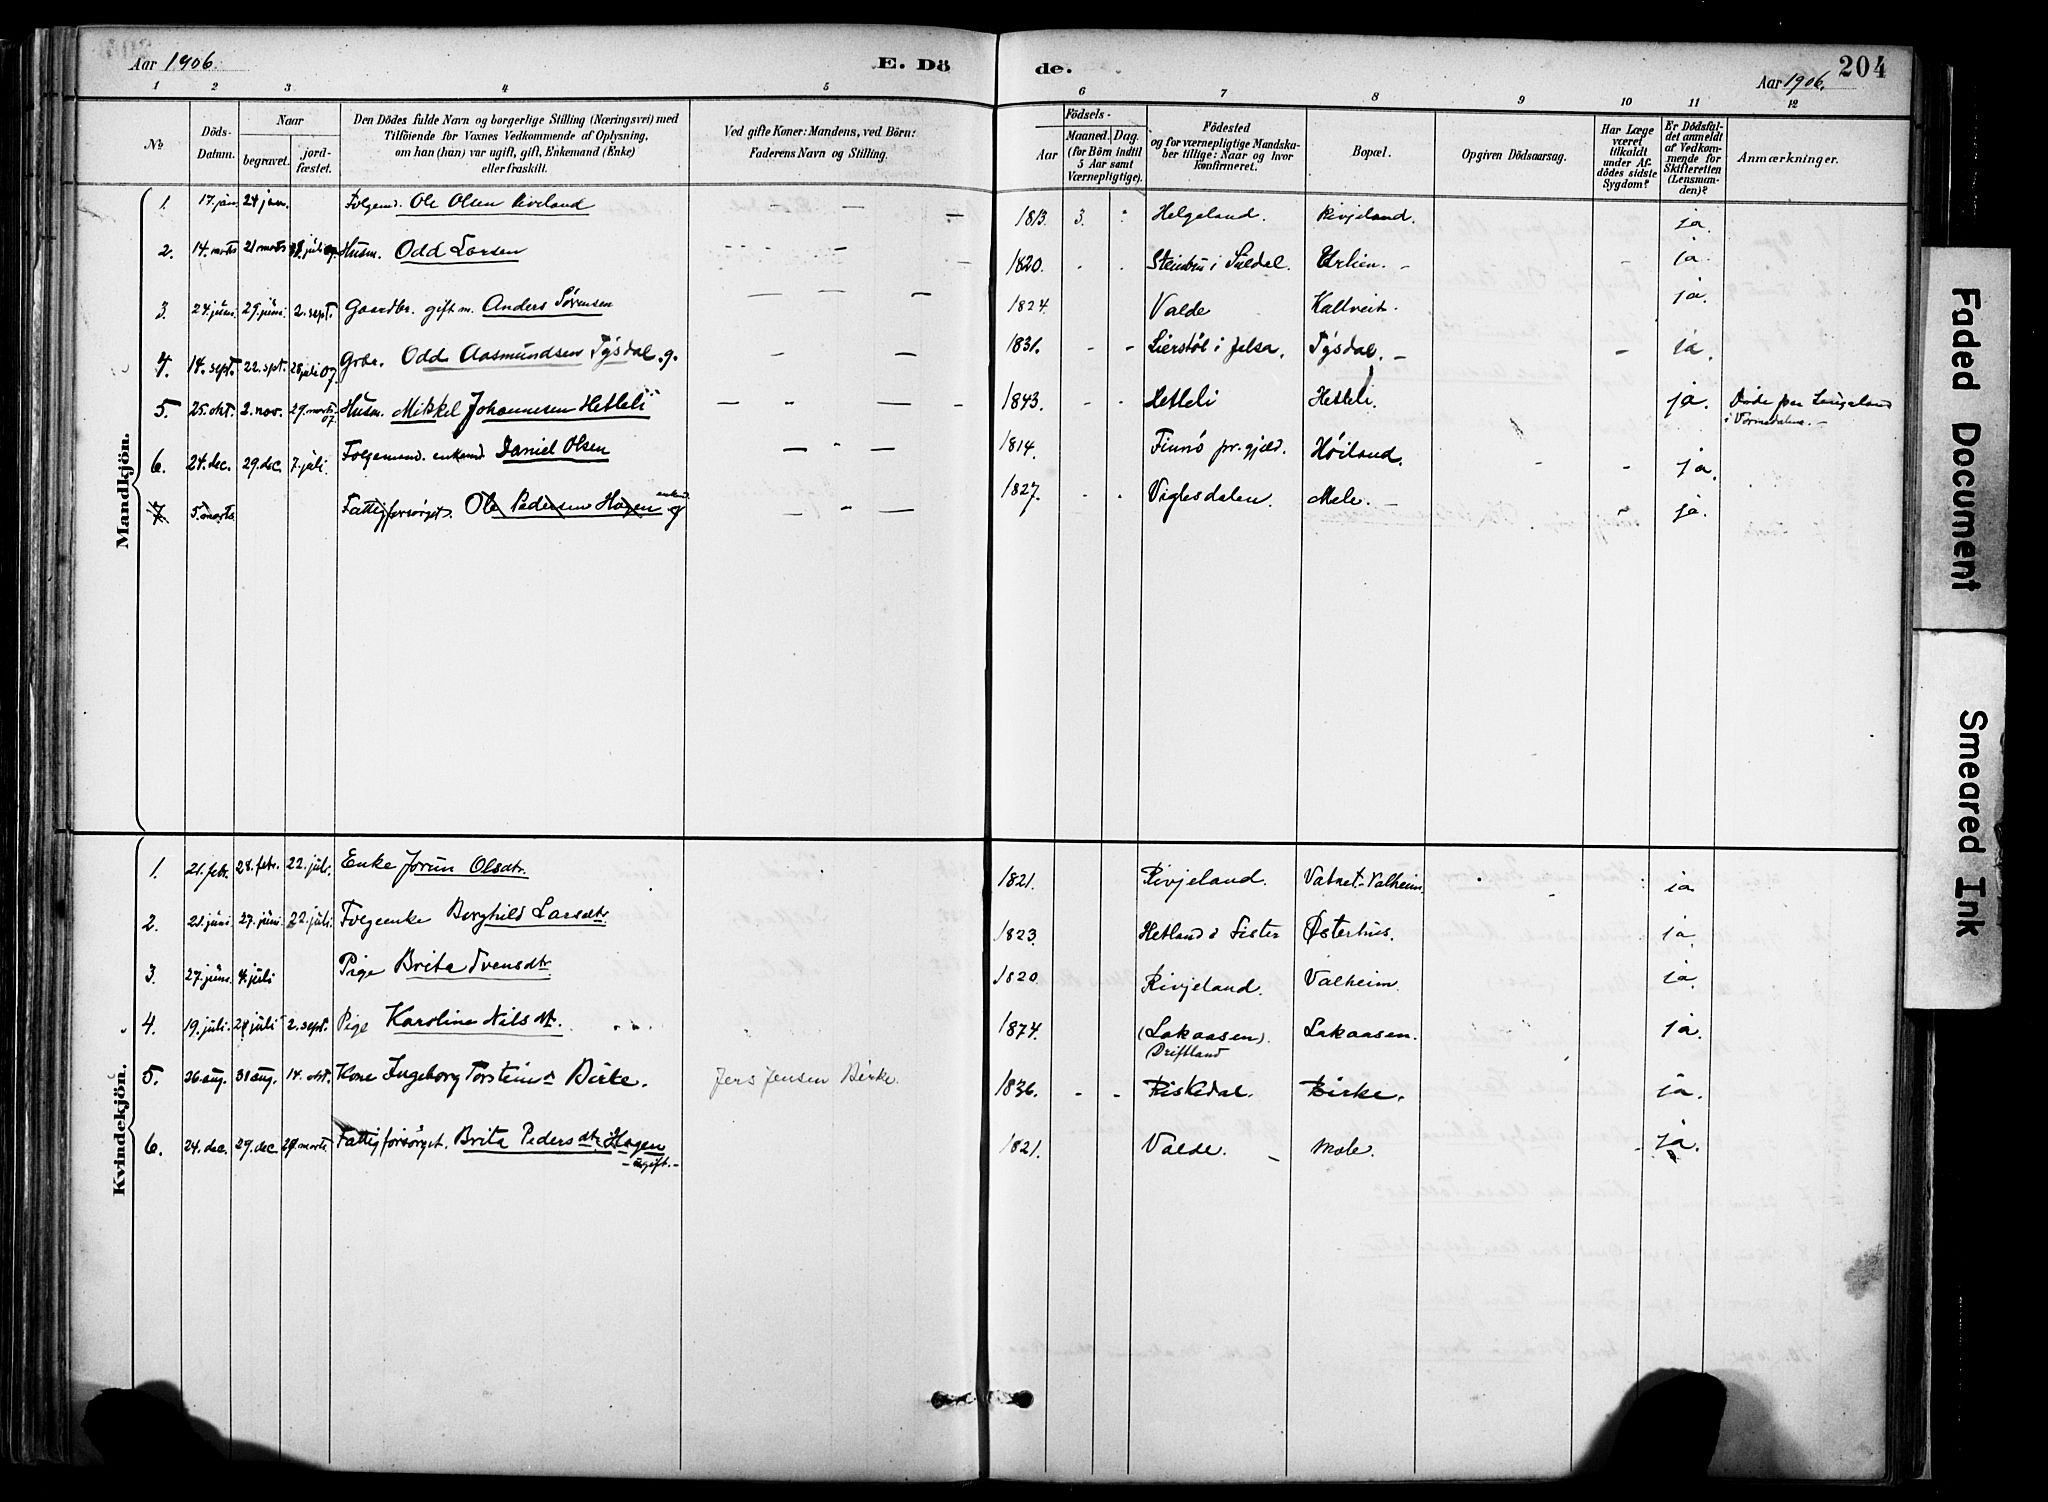 Aar 1906.
E. Dö
de.
Aar 1906.
204
1 2 3 4 5 6 7 8 9 10 11 12
No
Döds-Datum.
Naar
begravet.
jord-fæstet.
Den Dödes fulde Navn og borgerlige Stilling (Næringsvei) med
Tilföiende for Voxnes Vedkommende af Oplysning,
om han (hun) var ugift, gift, Enkemand (Enke)
eller fraskilt.
Ved gifte Koner: Mandens, ved Börn:
Faderens Navn og Stilling.
Födsels-
Aar
Maaned. Dag.
(for Börn indtil
5 Aar samt
Værnepligtige).
Födested
og for værnepligtige Mandska-
ber tillige: Naar og hvor
konfirmeret.
Bopæl.
Opgiven Dödsaarsag.
Har Læge
været
tilkaldt
under Af-
dödes sidste
Sygdom?
Er Dödsfal-
det anmeldt
af Vedkom-
mende for
Skifteretten
(Lensman-
den)?
Anmærkninger.
Mandkjön.
1. 17. jan. 24 jan. Folgemd. Ole Olsen — — — 1813. 3. Helgeland. Rivjeland. ja.
2. 14. marts 21 marts juli 07 Husm. Odd Larsen — — 1820. - - i Suldal. - - ja
3. 24. juni. 29. juni. 2. sept. Gaardbr. gift m. Anders Sørensen — — — 1824. Valde Kaltveit. ja.
4. 14. sept. 22. spt. 28 juli 07 Grbr. Odd Aasmundsen Tysdal. g. — — 1831. - - Lierstøl i Jelsa. Tysdal. - - ja.
5. 25. okt. 2. nov. 29. marts 07 Husm. Mikkel Johannesen Hetleli — — — 1843. - - Hetleli Hetleli. ja. Døde paa
i Vormedalen. -
6. 24. dec. 29. dec. 7. juli. Folgemand. enkemd Daniel Olsen — — 1814. Finnø pr. gjæld. Høiland. - - ja.
7 5. marts Fattigforsørget. Ole Pedersen Hagen enkemd — — 1827. - - Viglesdalen. Mele. - - ja.
Kvindekjön.
1. 21. febr. 28. febr. 22. juli. Enke Jorun Olsdtr. 1821. Rivjeland. Vatnet-Valheim. ja
2. 21. juni. 27. juni. 22. juli. Folgeenke Borghild Larsdtr. 1823. Hetland Østerhus. ja
3. 27. juni. 4. juli Pige Brita Svensdtr 1820. Rivjeland. Valheim. ja.
4. 19. juli. 24 juli 2. sept. Pige Karoline Nilsdt. 1874. (Lakaasen). Lakaasen. ja.
Driftland
5. 26. aug. 31 aug. 14. okt. Kone Ingeborg Torsteinsd Birke. Jens Jensen Birke. 1836. - - Riskedal. Birke. ja.
6. 24. dec. 29. dec. 29. marts Fattigforsørget. Brita Pedersdtr. Hagen 1821. Valde. - Mele. - ja.
- ugift. -
Faded Document
Smeared Ink